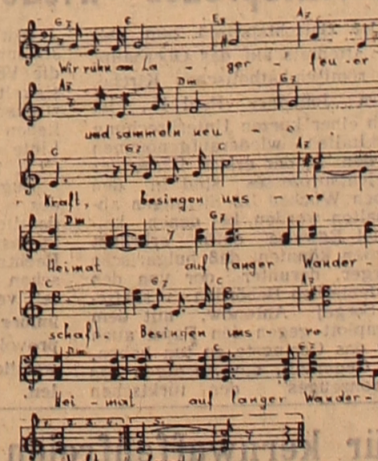 G7 C E7 A7
Wir ruhn am La - ger - feu - er
A7 Dm G7
und sammeln neu - e
C G7 C A7
Kraft, besingen uns - re
Dm G7
Heimat auf langer Wander -
C G7 C A7
schaft. Besingen uns - re
Dm C G7
Hei - mat auf langer Wander -